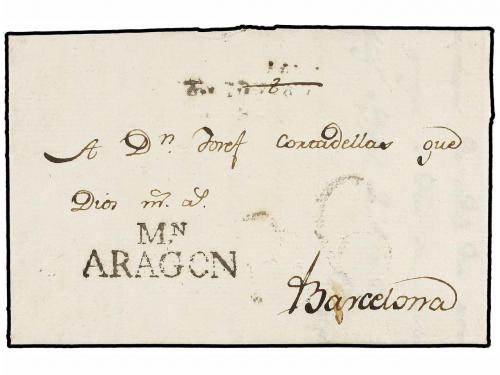 A Dn. Josef Cortadellas que
Dios m. a.
MN
ARAGON
Barcelona